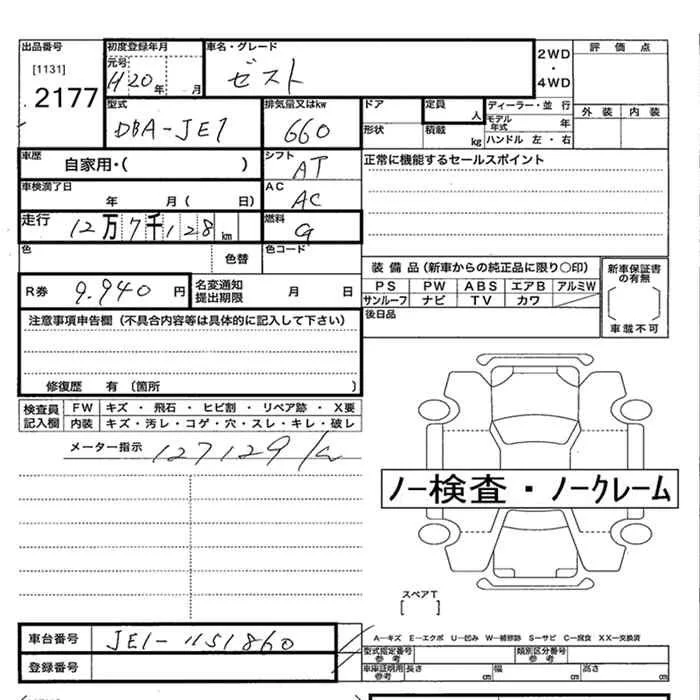 出品番号 [1131] 2177
初度登録年月 元号 H20年 月
車名・グレード ゼスト
2WD・4WD
評価点
外装 内装
型式 DBA-JE1
排気量又はkw 660
ドア 形状
定員 人
積載 kg
ディーラー・並行
モデル年式 年
ハンドル 左・右
車歴 自家用・( )
シフト AT
正常に機能するセールスポイント
車検満了日 年 月( 日)
AC AC
走行 12万7千128km
燃料 G
色 色替
色コード
装備品(新車からの純正品に限り○印)
PS PW ABS エアB アルミW
サンルーフ ナビ TV カワ
新車保証書の有無
車載不可
後日品
R券 9.940円
名変通知提出期限 月 日
注意事項申告欄(不具合内容等は具体的に記入して下さい)
修復歴 有 (箇所 )
検査員記入欄
FW キズ・飛石・ヒビ割・リペア跡・X要
内装 キズ・汚レ・コゲ・穴・スレ・キレ・破レ
メーター指示 127129k
ノー検査・ノークレーム
スペアT
[ ]
車台番号 JE1-1151860
登録番号
A―キズ E―エクボ U―凹み W―補修跡 S―サビ C―腐食 XX―交換済
型式指定番号 参考
類別区分番号 参考
車庫証明用 参考 長さ cm 幅 cm 高さ cm